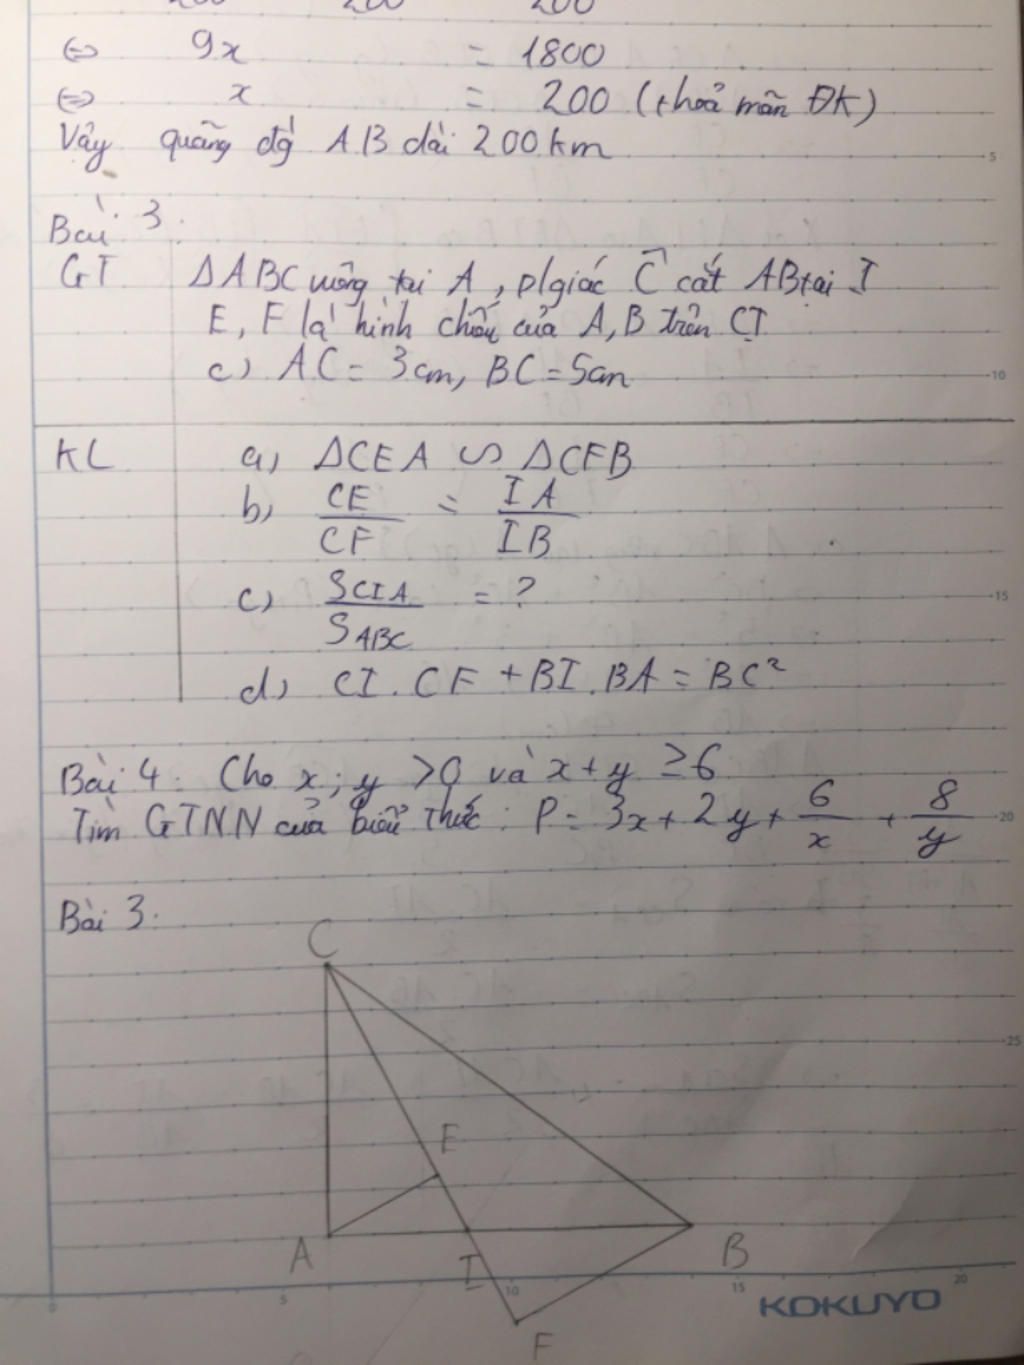 200 200 200
⇔ 9x = 1800
⇔ x = 200 (thoả mãn ĐK)
Vậy quãng đg AB dài 200km
Bài 3:
GT ΔABC vuông tại A, p/giác Ĉ cắt AB tại I
E, F là hình chiếu của A, B trên CI
c) AC = 3cm, BC = 5cm
KL a) ΔCEA ∽ ΔCFB
b) CE/CF = IA/IB
c) SCIA/SABC = ?
d) CI.CF + BI.BA = BC²
Bài 4: Cho x; y >0 và x+y ≥6
Tìm GTNN của biểu thức: P = 3x + 2y + 6/x + 8/y
Bài 3:
C
E
A
I
B
F
5
10
15
20
25
0
5
10
15
20
KOKUYO